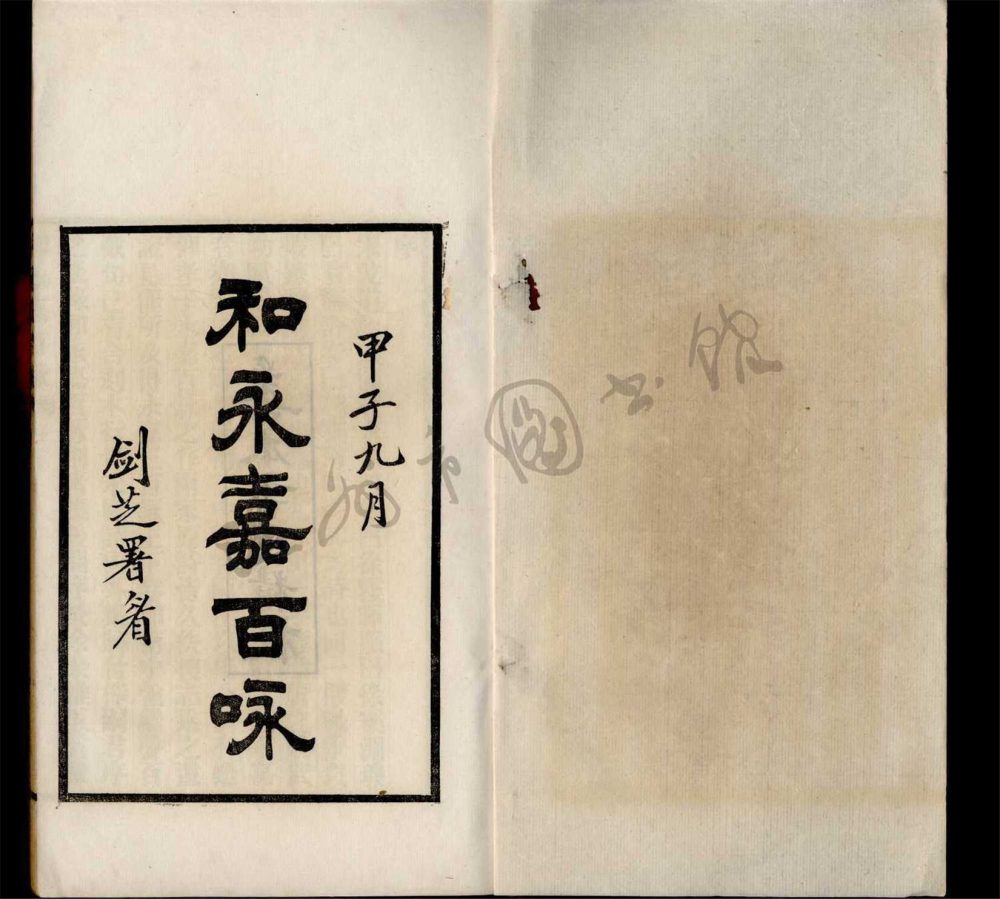 甲子九月
和永嘉百咏
剑芝署耑
图书馆